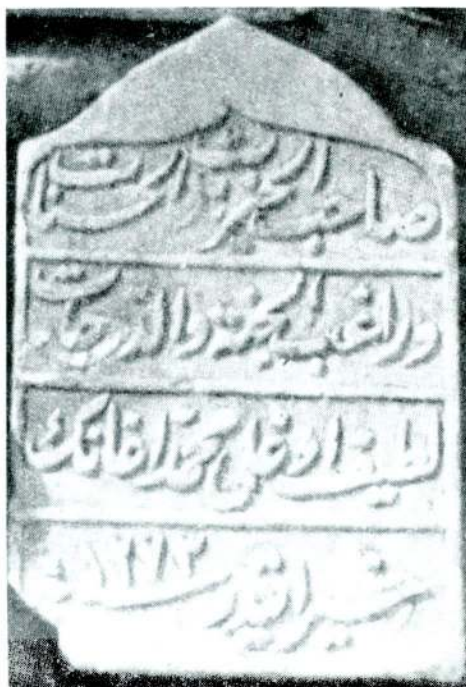 صاحب الخيرات والحسنات
وراغب الجنة والدرجات
لطيف زاده علي محمد اغانك
خيراتيدر سنه ١١٩٢